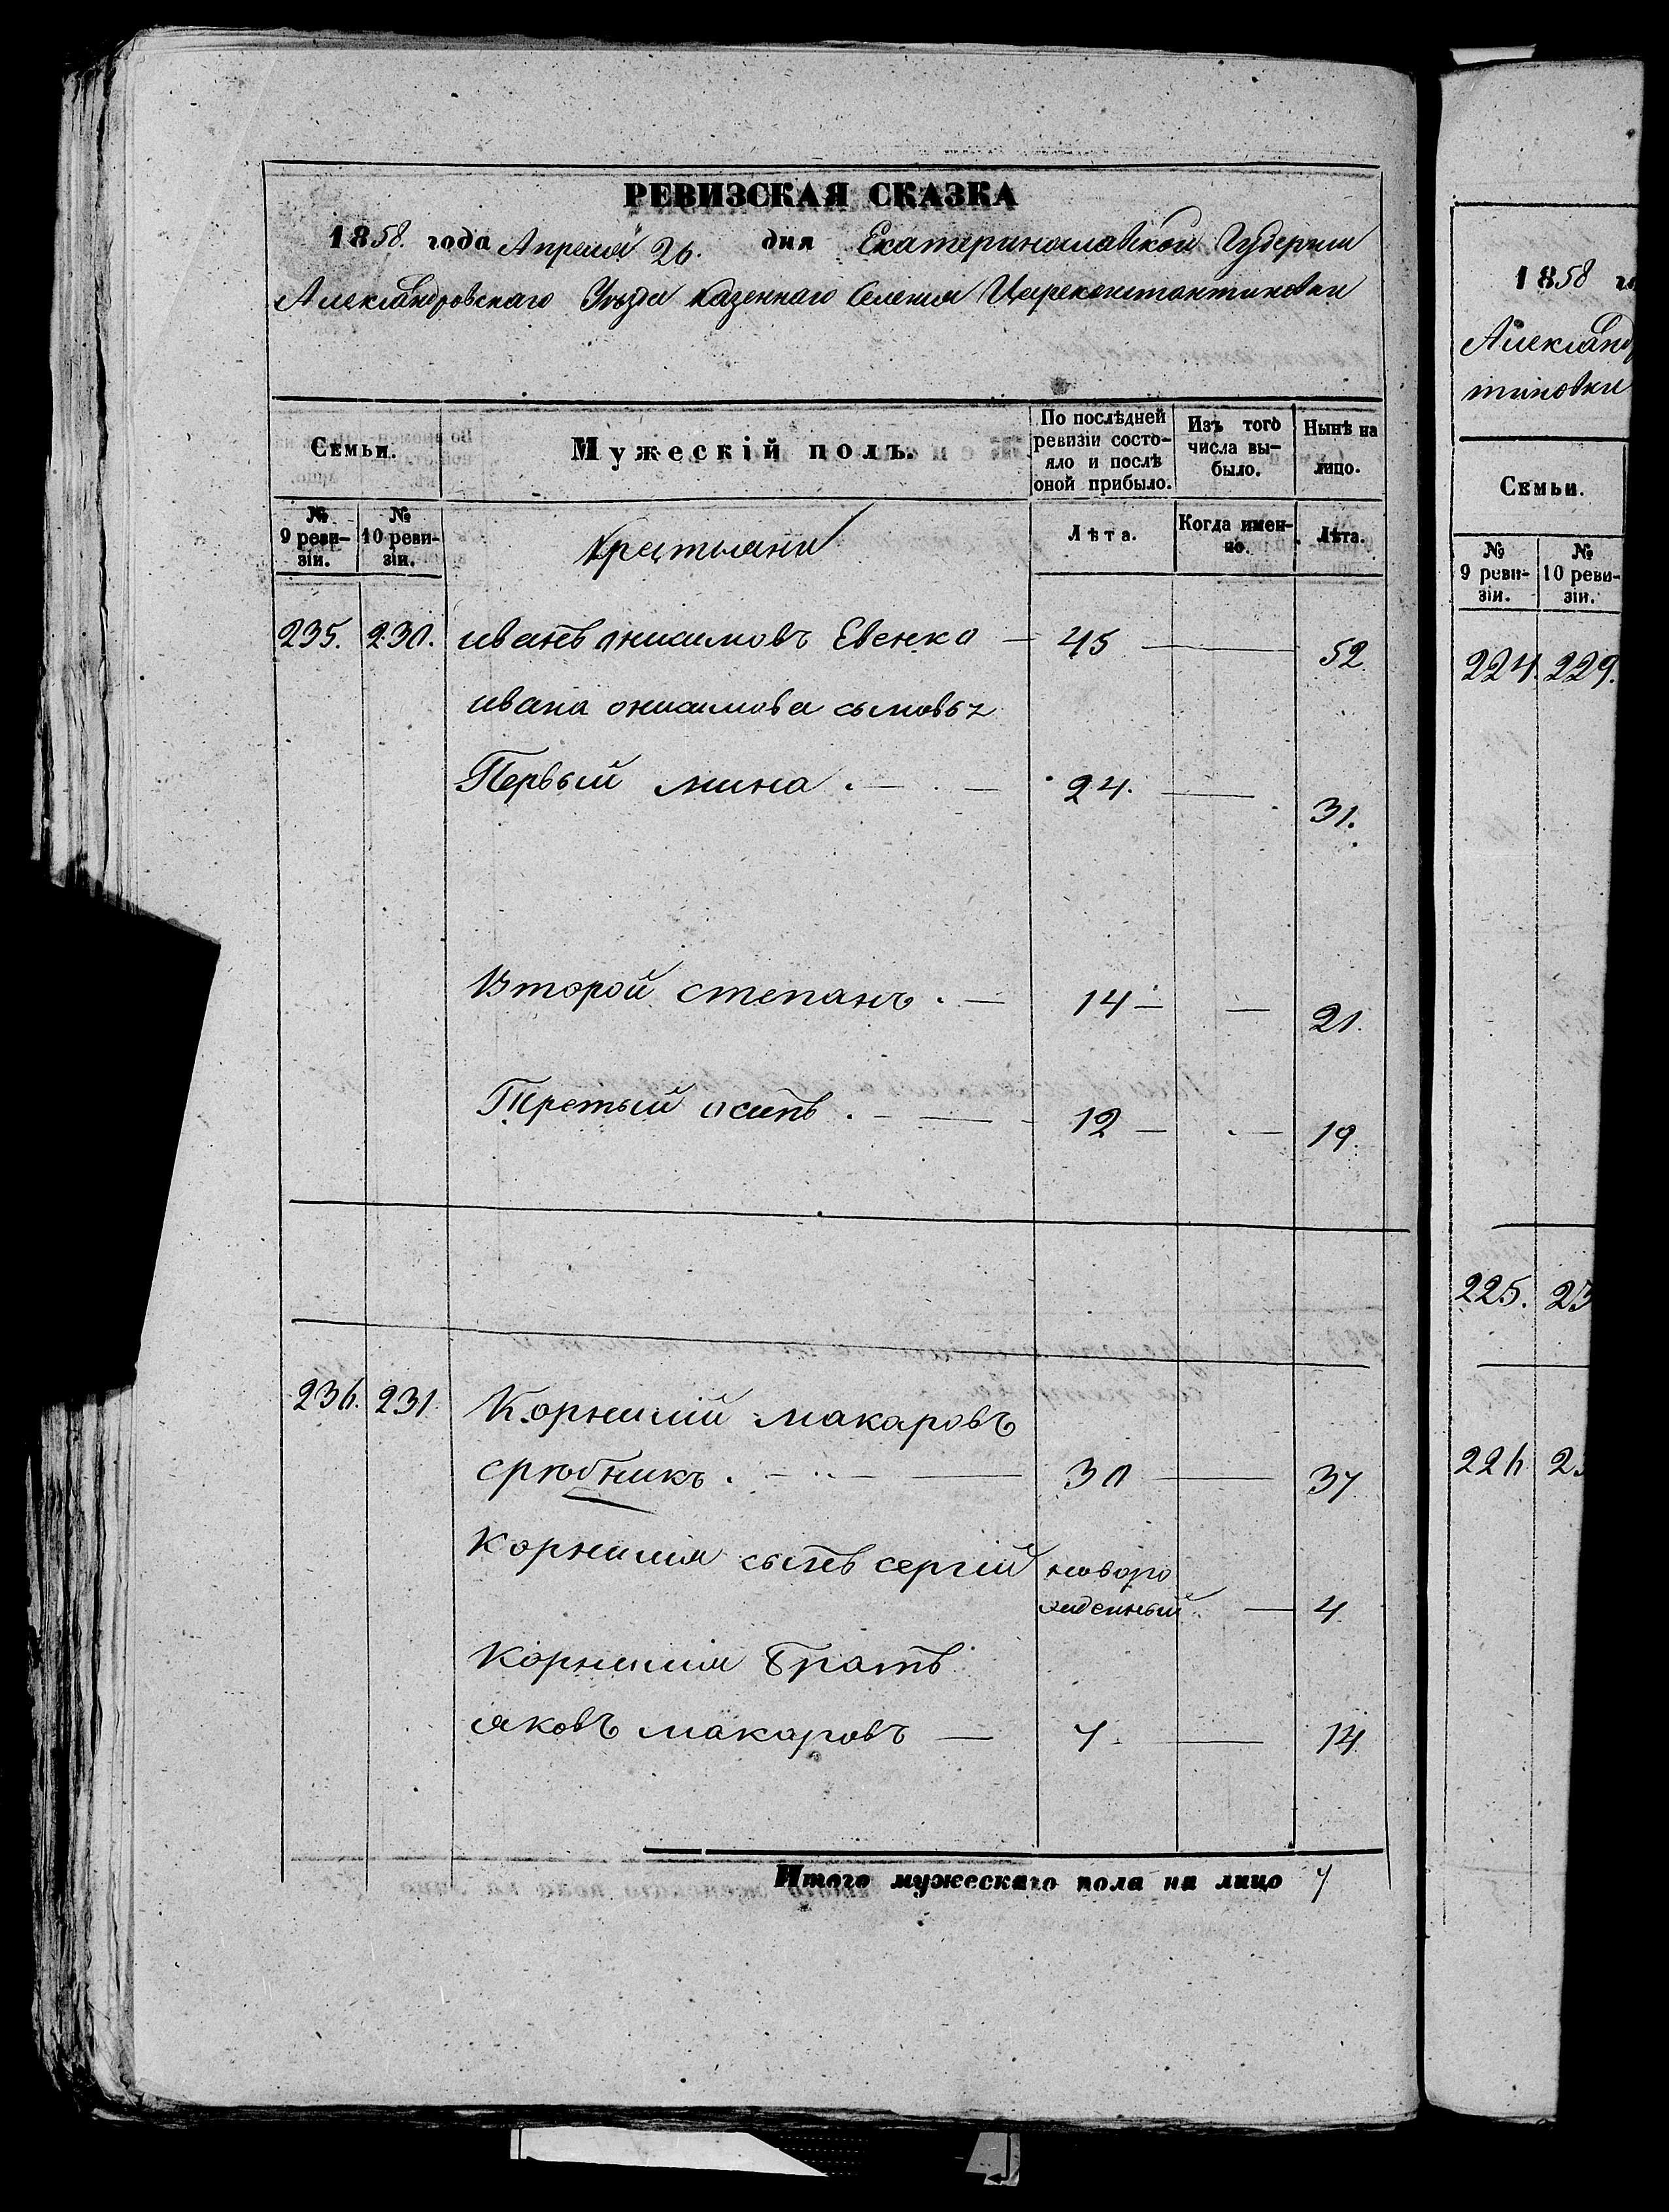 РЕВИЗСКАЯ СКАЗКА
1858 года Апреля 26. дня Екатеринославской Губернии
Александровскаго Уѣзда казеннаго Селения Цареконстантиновки
Семьи.
Мужескій полъ.
По послѣдней ревизіи состояло и послѣ оной прибыло.
Изъ того числа выбыло.
Нынѣ на лицо.
№ 9 ревизіи.
№ 10 ревизіи.
Крестьяни
Лѣта.
Когда именно.
Лѣта.
235. 230. иванъ онисимовъ Евенко — 45 — 52
ивана онисимова сыновья
Первый мина . — 24. — 31.
Второй степанъ . — 14 — — 21.
Третьий осипъ . — 12 — . — 19.
236. 231. Корнилий макаровъ
срюбникъ . — 30 — 37
Корнилия сынъ сергий новоро
жденный — 4
Корнилия братъ
яковъ макаровъ — 7 — 14
Итого мужескаго пола на лицо 7
1858 го
Александ
тиновки
Семьи.
№ 9 ревизіи.
№ 10 ревизіи.
224. 229.
225. 23
226 23